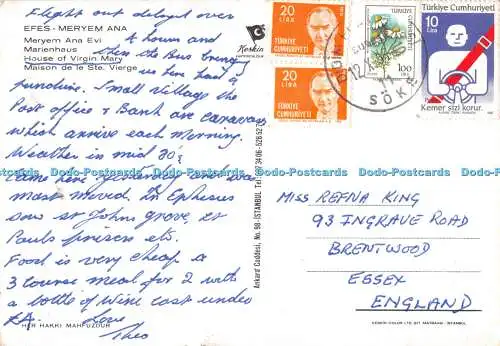 Flight out delayed over
EFES - MERYEM ANA
4 hours and
Meryem Ana Evi
Marienhaus
then the Bus bringing
House of Virgin Mary
Maison de le Ste. Vierge
us here had a
puncture. Small village the
Post office & Bank are caravans
which arrive each morning.
Weather in mid 80's.
Came here yesterday and was
most moved. In Ephesus
saw St Johns grove, St
Pauls prison etc.
Food is very cheap a
3 course meal for 2 with
a bottle of wine cost under
£4. Love
HER HAKKI MAHFUZDUR
Theo
Keskin
Ankara Caddesi, No. 98 - İSTANBUL Tel:
20
LİRA
TÜRKİYE
CUMHURİYETİ
20
LİRA
TÜRKİYE
CUMHURİYETİ
100
SÖKE
Türkiye Cumhuriyeti
10
Lira
Kemer sizi korur.
MISS REFNA KING
93 INGRAVE ROAD
BRENTWOOD
ESSEX
ENGLAND
KESKİN COLOR LTD. ŞTİ. MATBAASI - İSTANBUL
Dodo-Postcards Dodo-Postcards Dodo-Postcards Dodo-Postcards